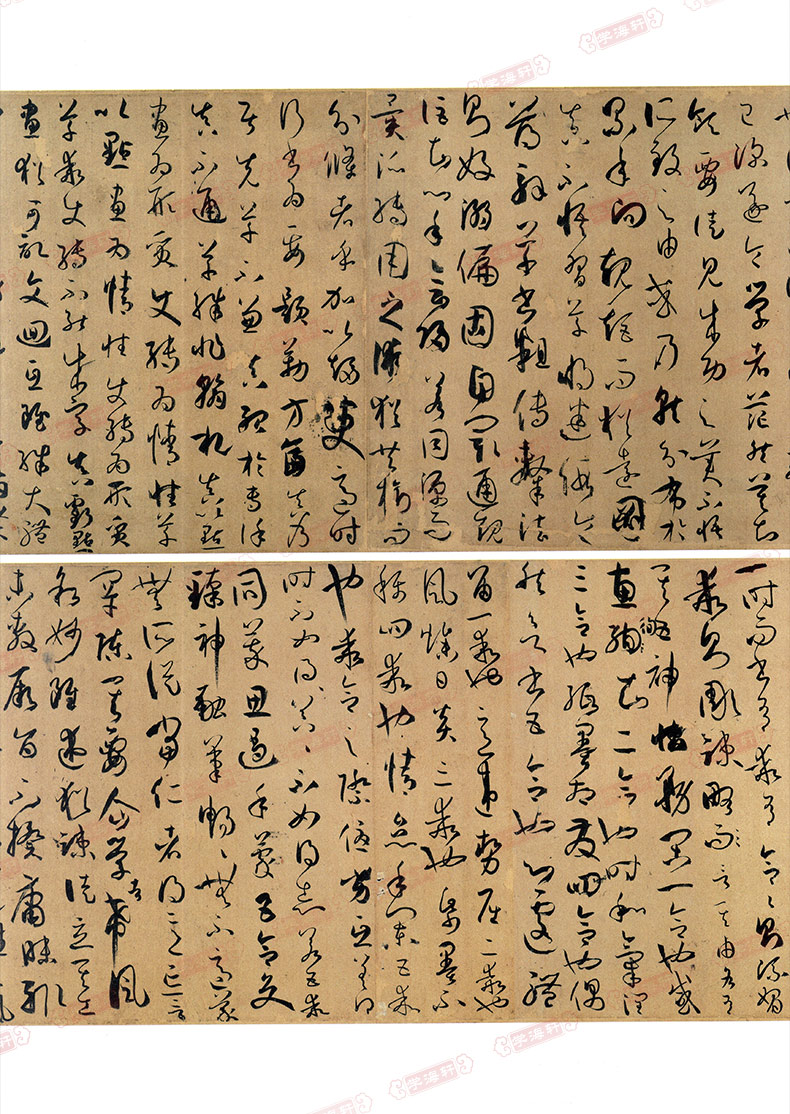 已深遂令學者茫然莫知
領要徒見成功之美不悟
所致之由或乃就分布於
累年向規矩而猶遠圖
真不悟習草將迷假令
薄解草書粗傳隸法
則好溺偏固自閡通規
詎知心手會歸若同源而
異派轉用之術猶共樹而
分條者乎加以趨變適時
行書為要題勒方畐真乃
居先草不兼真殆於專謹
真不通草殊非翰札真以點
畫為形質使轉為情性草
以點畫為情性使轉為形質
草乖使轉不能成字真虧點
畫猶可記文迴互雖殊大體
一時而書有乖有合合則流媚
乖則彫疎略而言之其由各有
其五神怡務閑一合也感
惠徇知二合也時和氣潤
三合也紙墨相發四合也偶
然欲書五合也心遽體
留一乖也意違勢屈二乖也
風燥日炎三乖也紙墨不
稱四乖也情怠手闌五乖
也乖合之際優劣互差得
時不如得器得器不如得志若五乖
同萃思遏手蒙五合交
臻神融筆暢暢無不適蒙
無所從當仁者得意忘言
罕陳其要企學者希風
敘妙雖述猶疎徒立其工
未敷厥旨不揆庸昧輒
学海轩